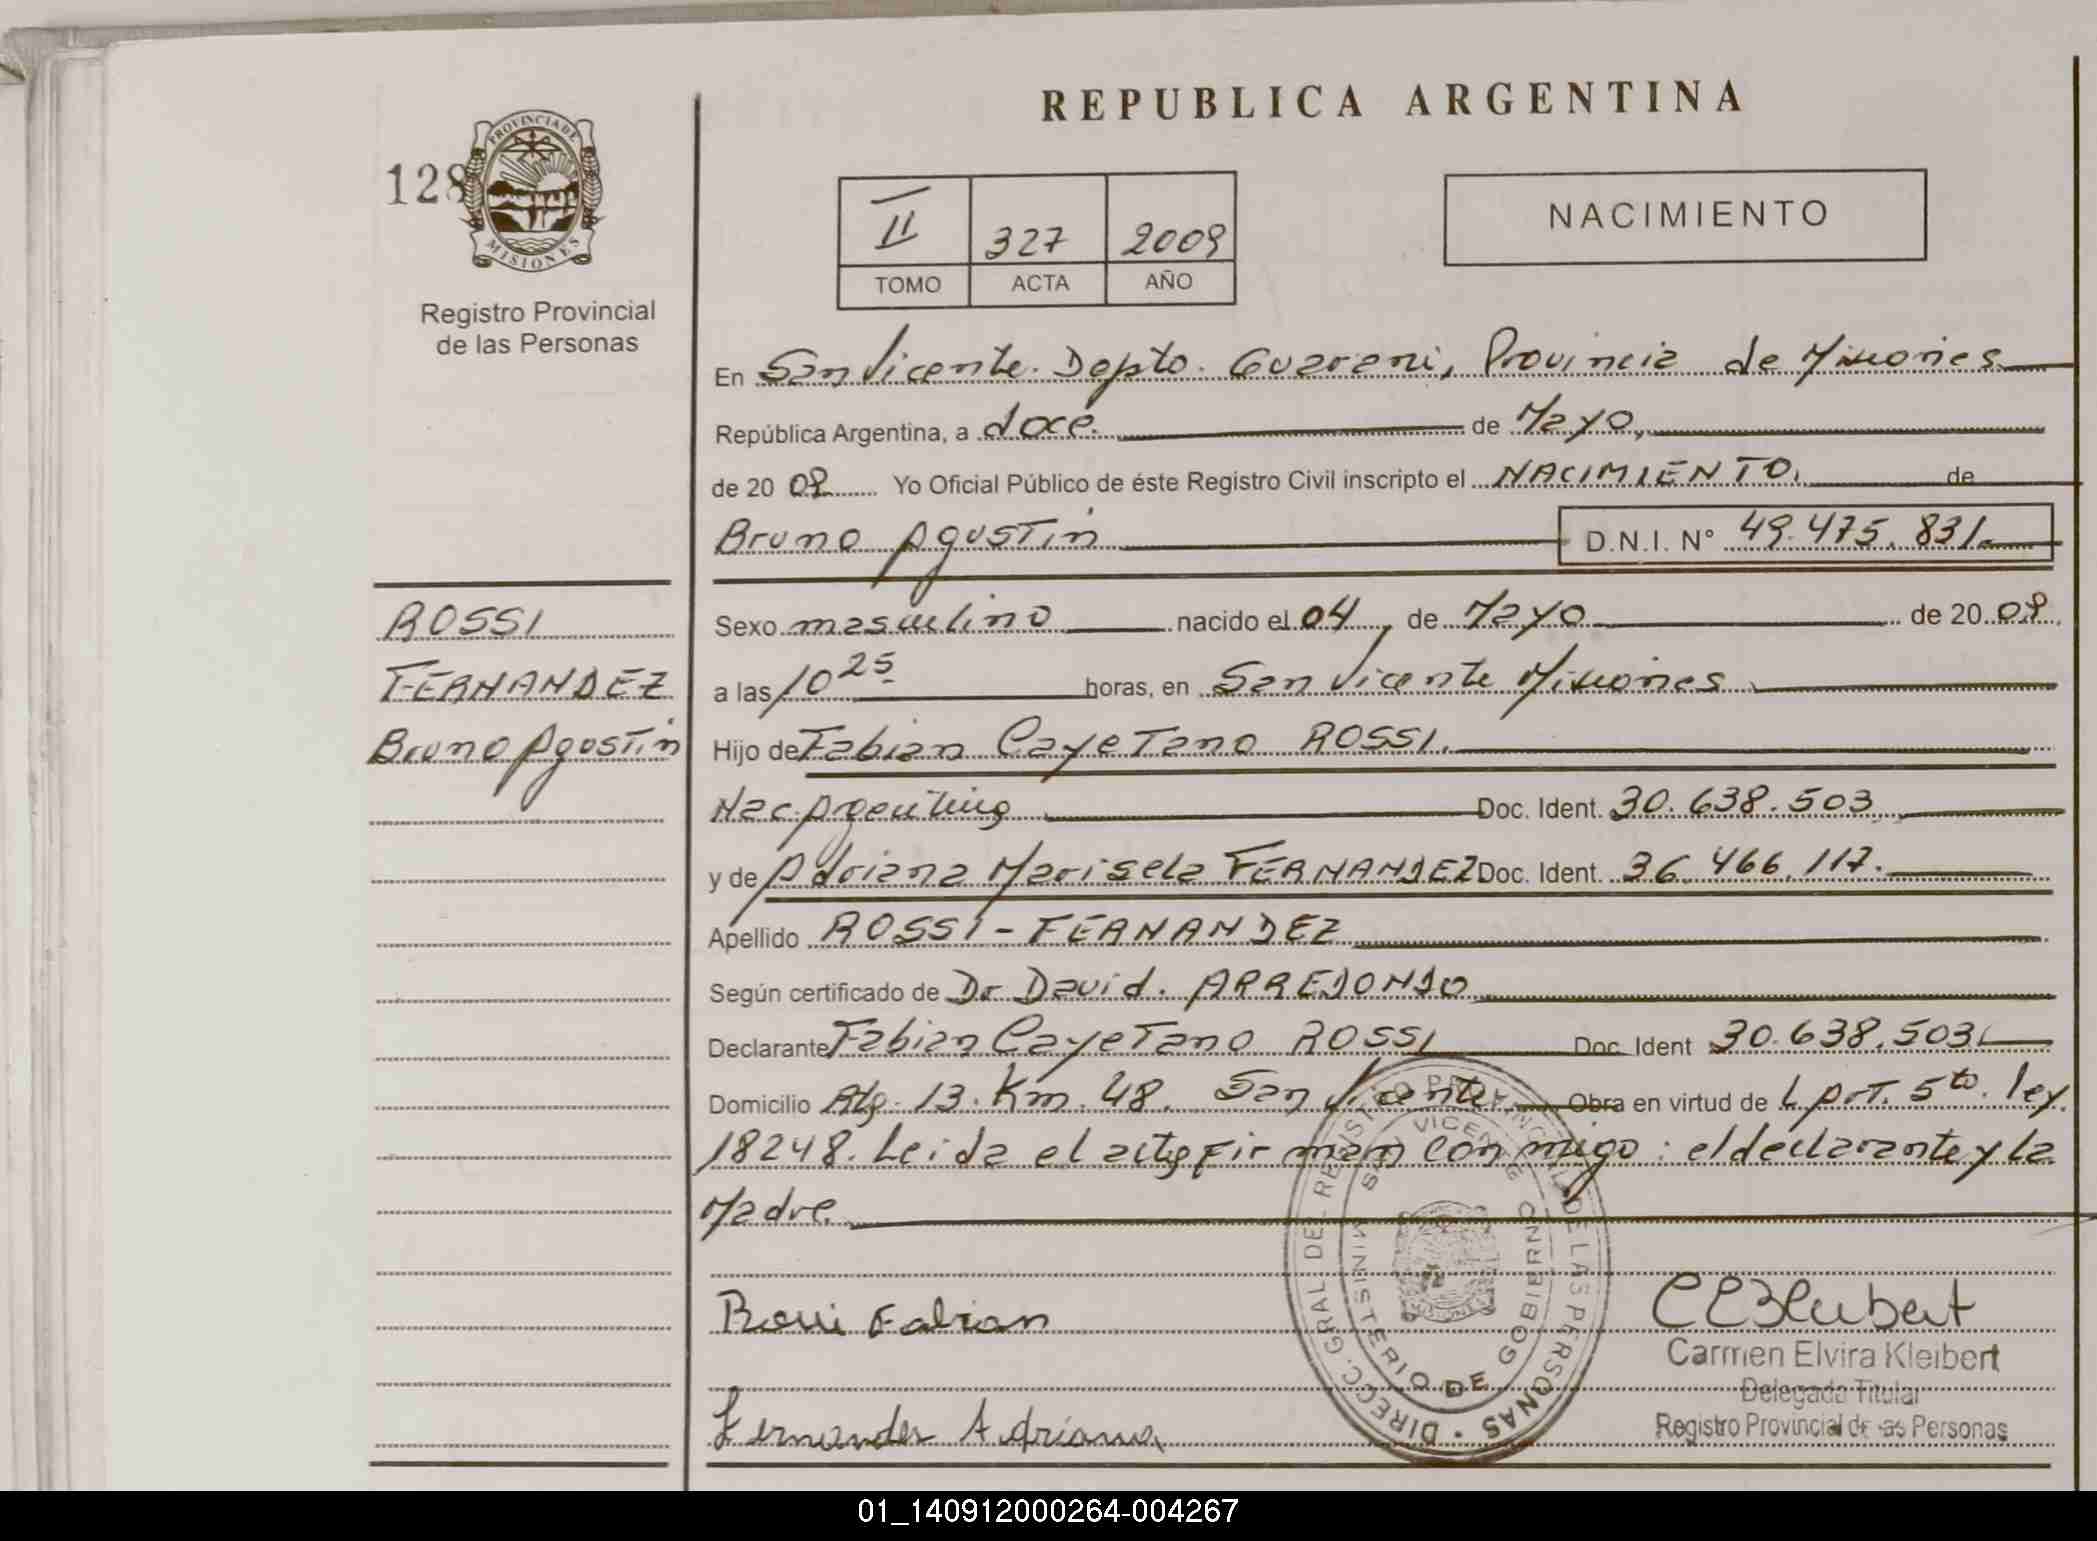 REPUBLICA ARGENTINA
128
PROVINCIA DE MISIONES
Registro Provincial
de las Personas
II 327 2009
TOMO ACTA AÑO
NACIMIENTO
En San Vicente. Depto. Guarani, Provincia de Misiones
República Argentina, a doce. de Mayo,
de 20 09 Yo Oficial Público de éste Registro Civil inscripto el NACIMIENTO. de
Bruno Agustin D.N.I. Nº 49.475.831.
ROSSI
FERNANDEZ
Bruno Agustin
Sexo masculino nacido el 04 de Mayo de 20 09.
a las 10 25 horas, en San Vicente Misiones
Hijo de Fabian Cayetano ROSSI.
Nac. Argentina Doc. Ident. 30.638.503
y de Adriana Marisela FERNANDEZ Doc. Ident. 36.466.117.
Apellido ROSSI - FERNANDEZ
Según certificado de Dr David. ARREDONDO
Declarante Fabian Cayetano ROSSI Doc. Ident 30.638.503
Domicilio Alg. 13. Km. 48. San Vicente Obra en virtud de L Art. 5to. ley
18248. Leida el acta firman conmigo: el declarante y la
Madre.
Rossi Fabian
Fernandez Adriana
DIRECC. GRAL DEL REGISTRO PROVINCIAL DE LAS PERSONAS
SAN VICENTE
MINISTERIO DE GOBIERNO
CEKleibert
Carmen Elvira Kleibert
Delegada Titular
Registro Provincial de las Personas
01_140912000264-004267